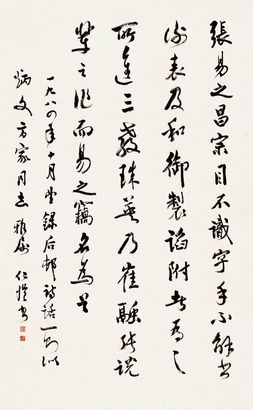 張易之昌宗目不識字手不解書
謝表及和御製諂附者為之
所進三教珠英乃崔融張說
輩之作而易之竊名為首
一九八四年十月錄后邨詩話一則以
炳文方家同志雅屬 仁愷書